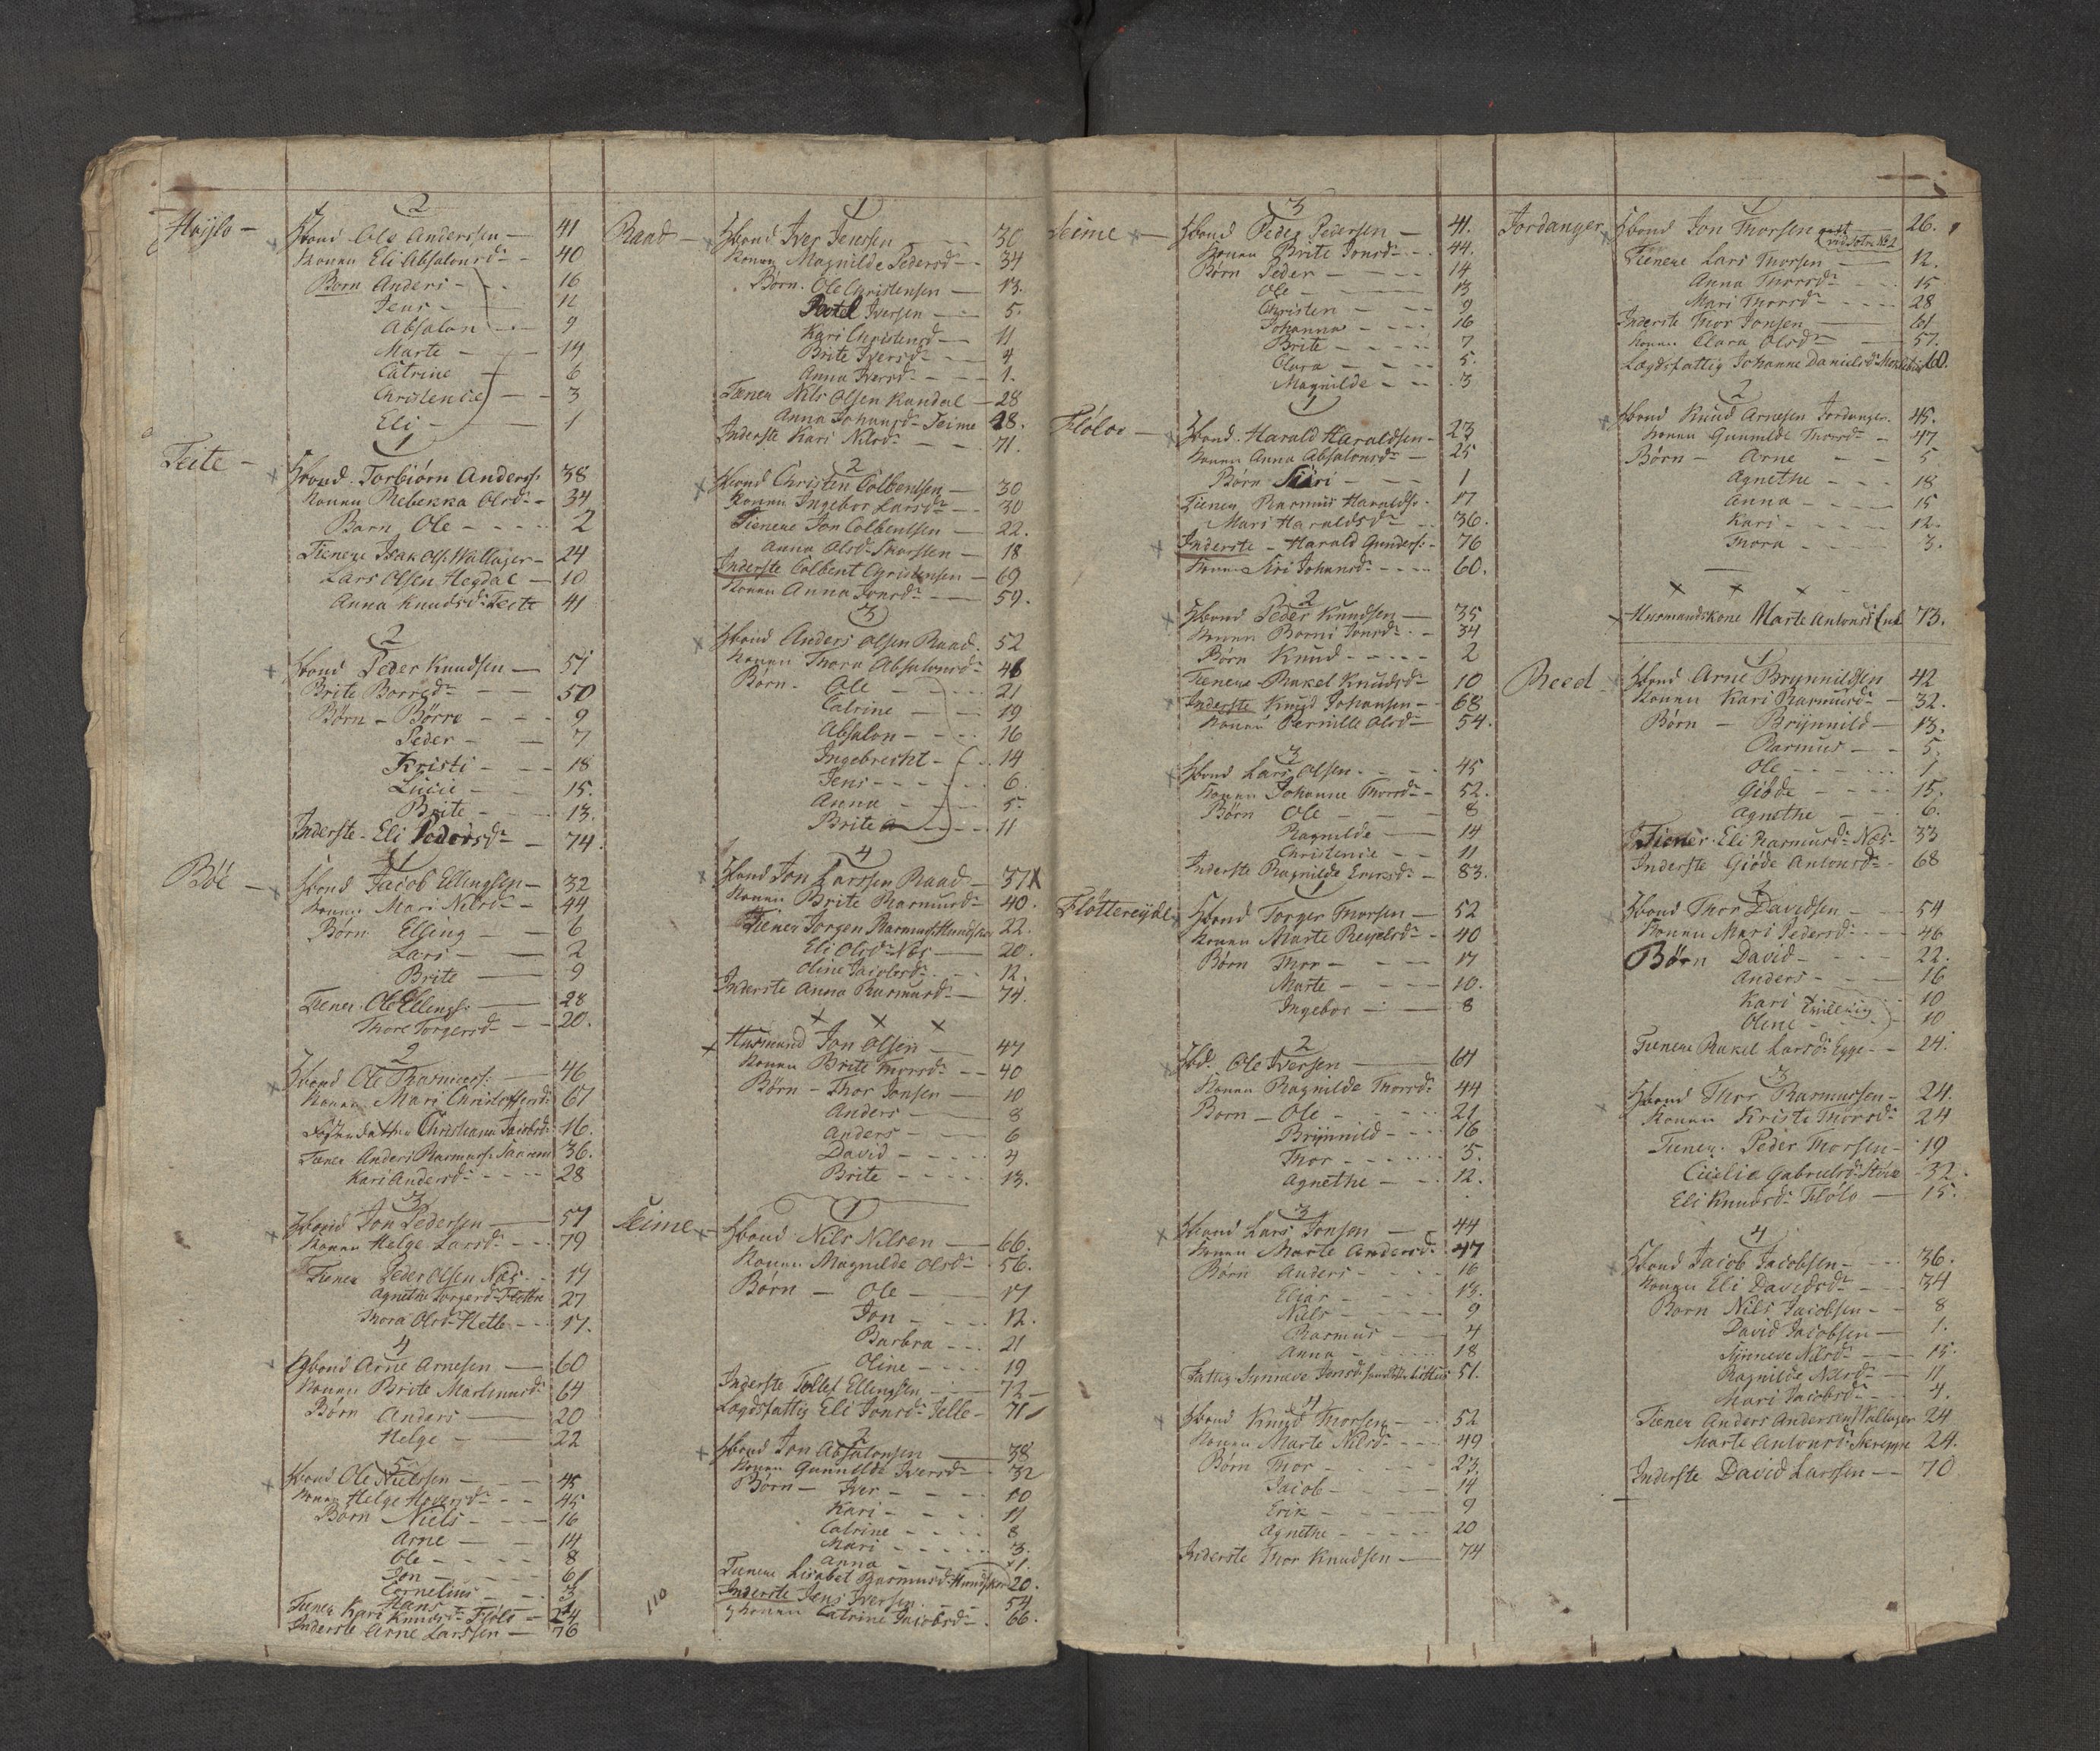 2
Høijlo - Hbond Ole Anderssen - 41
Konen Eli Absalonsd: - 40
Børn Anders - 16
Jens - 12
Absalon - 9
Marte - 14
Catrine - 6
Christence - 3
Eli - 1
1
Teite - Hbond Torbiørn Anderss: 38
Konen Rebekka Olsd: - 34
Barn Ole - 2
Tienere Isak Ols: Wallager - 24
Lars Olsen Hegdal - 10
Anna Knudsd: Teite 41
2
Hbond Peder Knudsen - 51
Brite Borresd: - 50
Børn - Børre - 9
Peder - 7
Kristi - 18
Lucie - 15.
Brite - 13.
Inderste - Eli Pedersd: - 74.
1
Bøe - Hbond Jacob Ellingsen - 32
Konen Mari Nilsd: - 44
Børn Elling - 6
Lars - 2
Brite - 9
Tiener Ole Ellings: - 28
Thore Torgersd: - 20.
2
Hbond Ole Rasmuss: - 46
Konen Mari Christoffersd: 67
Christiana Jacobsd: 16.
Tiener Anders Rasmuss: 36.
Kari Andersd: - 28
3
Hbond Jon Pedersen - 57
Konen Helge Larsd: - 79
Tiener Peder Olsen Næs - 17
Agnethe Torgersd: 27
Thora Olsd: Hetle - 17.
4
Hbond Arne Arnesen - 60
Konen Brite Martinusd: 64
Børn Anders - 20
Helge - 22
5
Hbond Ole Nielssen - 45
Konen Helge - 45
Børn Niels - 16
Arne - 14
Ole - 8
Jon - 6
Cornelius - 3
Hans - 1
Tiener Kari Knudsd: Fløle - 24
Inderste Arne Larssen - 76
1
Raad - Hbond Iver Jenssen - 30
Konen Magnilde Pedersd: - 34
Børn. Ole Christensen - 13.
Iversen - 5.
Kari Christensd: - 11
Brite Iversd: - 4
Anna Iversd: - 1.
Tiener Nils Olsen Kandal - 28
Anna Johansd: Seime 18.
Inderste Kari Nilsd: - 71.
2
Hbond Christen Colbentsen - 30
Konen Ingebor Larsd: - 30
Tienere Jon Colbentsen - 22.
Anna Olsd: Skarsten - 18
Inderste Colbent Christensen - 69
Konen Anna Jonsd: - 59.
3
Hbond Anders Olsen Raad. 52
Konen Thora Absalonsd: 46
Børn - Ole - 21
Catrine - 19
Absalon - 16
Ingebrecht - 14
Jens - 6.
Anna - 5.
Brite - 11
4
Hbond Jon Larssen Raad - 37
Konen Brite Rasmusd: 40.
Tiener Jorgen Rasmuss: 22.
Eli Olsd: Næs - 20.
Oline Jacobsd: - 12.
Inderste Anna Rasmusd: - 74.
x x x
Husmand Jon Olsen - 47
Konen Brite Thorsd: - 40
Børn - Thor Jonsen - 10
Anders - 8
Anders - 6
David - 4
Brite - 13.
1
Seime - Hbond Nils Nilsen - 66.
Konen Magnilde Olsd: 56.
Børn - Ole - 17
Jon - 12.
Barbra - 21
Oline - 19
Inderste Tollef Ellingsen - 72 -
Lægdsfattig Eli Jonsd: Jelle - 71
2
Hbond Jon Absalonsen - 38
Konen Gunnilde Iversd: 32
Børn - Iver - 10
Kari - 11
Catrine - 8
Mari - 3.
Anna - 1.
Tienere Lisabet Rasmusd: 20.
Inderste Jens Iversen - 54
Konen Catrine Jacobsd: - 66.
110
3
Seime - Hbond Peder Pedersen - 41.
Konen Brite Jonsd: - 44.
Børn Peder - 14
Ole - 13
Christen - 9
Johanna - 16
Brite - 7
Clara - 5.
Magnilde - 3
1
Fløloe - Hbond. Harald Haraldsen - 27
Konen Anna Absalonsd: - 25
Børn Siri - 1
Tiener Rasmus Haralds: - 17
Mari Haraldsd: - 36.
Inderste - Harald Gunders: - 76
Konen Siri Johansd: - 60.
2
Hbond Peder Knudsen - 35
Konen Borni Jonsd: - 34
Børn Knud - 2
Tienere Rakel Knudsd: 10
Inderste Knud Johansen - 68
Konen Pernille Olsd: - 54.
3
Hbond Lars Olsen - 45
Konen Johanne Thorsd: - 52.
Børn Ole - 8
Ragnilde - 14
Christense - 11
Inderste Ragnilde Eriksd: - 83.
1
Fløttereyde Hbond Torger Thorsen - 52
Konen Marte Reyelsd: - 40
Børn Thor - 17
Marte - 10.
Ingebor - 8
2
Hbd: Ole Iversen - 61
Konen Ragnilde Thorsd: 44
Børn - Ole - 21
Brynnild - 16
Thor - 5.
Agnethe - 12.
3
Hbond Lars Jonsen - 44
Konen Marte Andersd: 47
Børn Anders - 16
Elias - 13.
Niels - 9
Rasmus - 4
Anna - 18
Fattig Synneve Jonsd: 51.
4
Hbond Knud Thorsen - 52
Konen Marte Nilsd: - 49
Børn Thor - 23.
Jacob - 14
Erik - 9
Agnethe - 20
Inderste Thor Knudsen - 74
1
Jordanger Hbond Jon Thorsen 26.
Tienere Lars Thorsen - 12.
Anna Thorsd: - 15
Mari Thorsd: - 28
Inderste Thor Jonsen - 61
Konen Clara Olsd: - 57.
Lægdsfattig Johanne Danielsd: 60.
2
Hbond Knud Arnesen Jordanger. 45.
Konen Gunnilde Thorsd: - 47
Børn - Arne - 5
Agnethe - 18
Anna - 15
Kari - 12.
Thora - 3.
x x x
Husmandskone Marte Antonsd: 73.
1
Reed - Hbond Arne Brynnildsen 42
Konen Kari Rasmusd: - 32.
Børn - Brynnild - 13.
Rasmus - 5.
Ole - 1
Giøde - 15.
Agnethe - 6.
Tiener Eli Rasmusd: Næs - 33
Inderste Giøde Antonsd: - 68
2
Hbond Thor Davidsen - 54
Konen Mari Pedersd: - 46
Børn David - 22.
Anders - 16
Kari Tvilling 10
Oline - 10
Tienere Rakel Larsd: Egge - 24.
3
Hbond Thor Rasmussen - 24.
Konen Kristi Thorsd: 24
Tiener. Peder Thorsen - 19
Cicilia Gabrielsd: 32.
Eli Knudsd: Fløle - 15.
4
Hbond Jacob Jacobsen - 36.
Konen Eli Davidsd: - 34
Børn Nils Jacobsen - 8
David Jacobsen - 1.
Synneve Nilsd: - 15.
Ragnilde Nilsd: - 11
Mari Jacobsd: - 4.
Tiener Anders Andersen Wallager 24
Marte Antonsd: 24.
Inderste David Larssen - 70